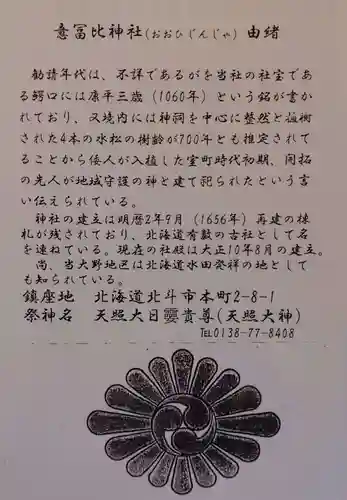 意冨比神社(おおひじんじゃ)由緒
勧請年代は、不詳であるがを当社の社宝であ
る鰐口には康平三歳（1060年）という銘が書か
れており、又境内には神祠を中心に整然と植樹
された4本の水松の樹齢が700年とも推定されて
ることから倭人が入植した室町時代初期、開拓
の先人が地域守護の神と建て祀られたという言
い伝えられている。
神社の建立は明暦2年9月（1656年）再建の棟
札が残されており、北海道有数の古社として名
を連ねている。現在の社殿は大正10年8月の建立。
尚、当大野地区は北海道水田発祥の地として
も知られている。
鎮座地 北海道北斗市本町2-8-1
祭神名 天照大日孁貴尊(天照大神)
TEL0138-77-8408